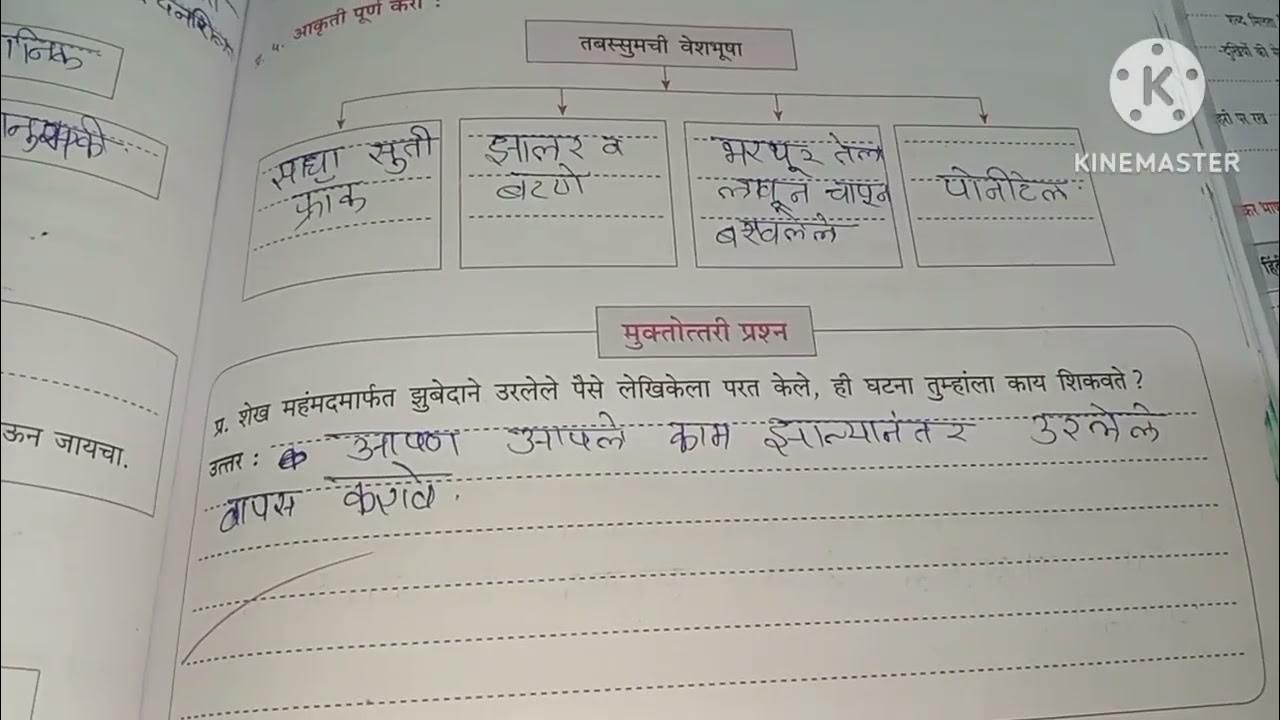 प्र. ५. आकृती पूर्ण करा :
तबस्सुमची वेशभूषा
साधा सुती
फ्राक
झालर व
बटणे
भरपूर तेल
लावून चापून
बसवलेले
पोनीटेल
मुक्तोत्तरी प्रश्न
प्र. शेख महंमदमार्फत झुबेदाने उरलेले पैसे लेखिकेला परत केले, ही घटना तुम्हांला काय शिकवते ?
उत्तर : आपण आपले काम झाल्यानंतर उरलेले
वापस करावे.
ऊन जायचा.
KINEMASTER